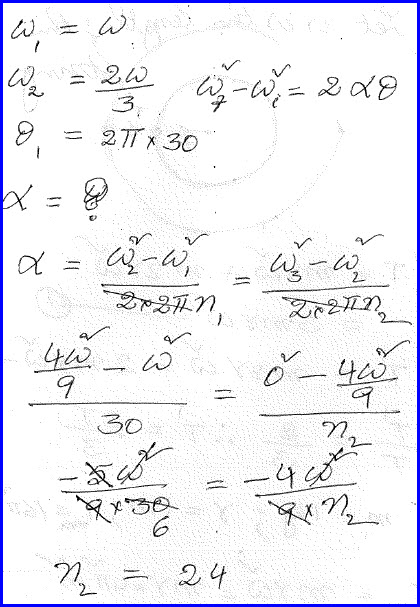 ω₁ = ω
ω₂ = 2ω/3   ω_f² − ω_i² = 2αθ
θ₁ = 2π × 30
α = ?
α = (ω₂² − ω₁²)/(2×2π n₁) = (ω₃² − ω₂²)/(2×2π n₂)
(4ω²/9 − ω²)/30 = (0² − 4ω²/9)/n₂
−5ω²/(9×30) = −4ω²/(9×n₂)
6
n₂ = 24